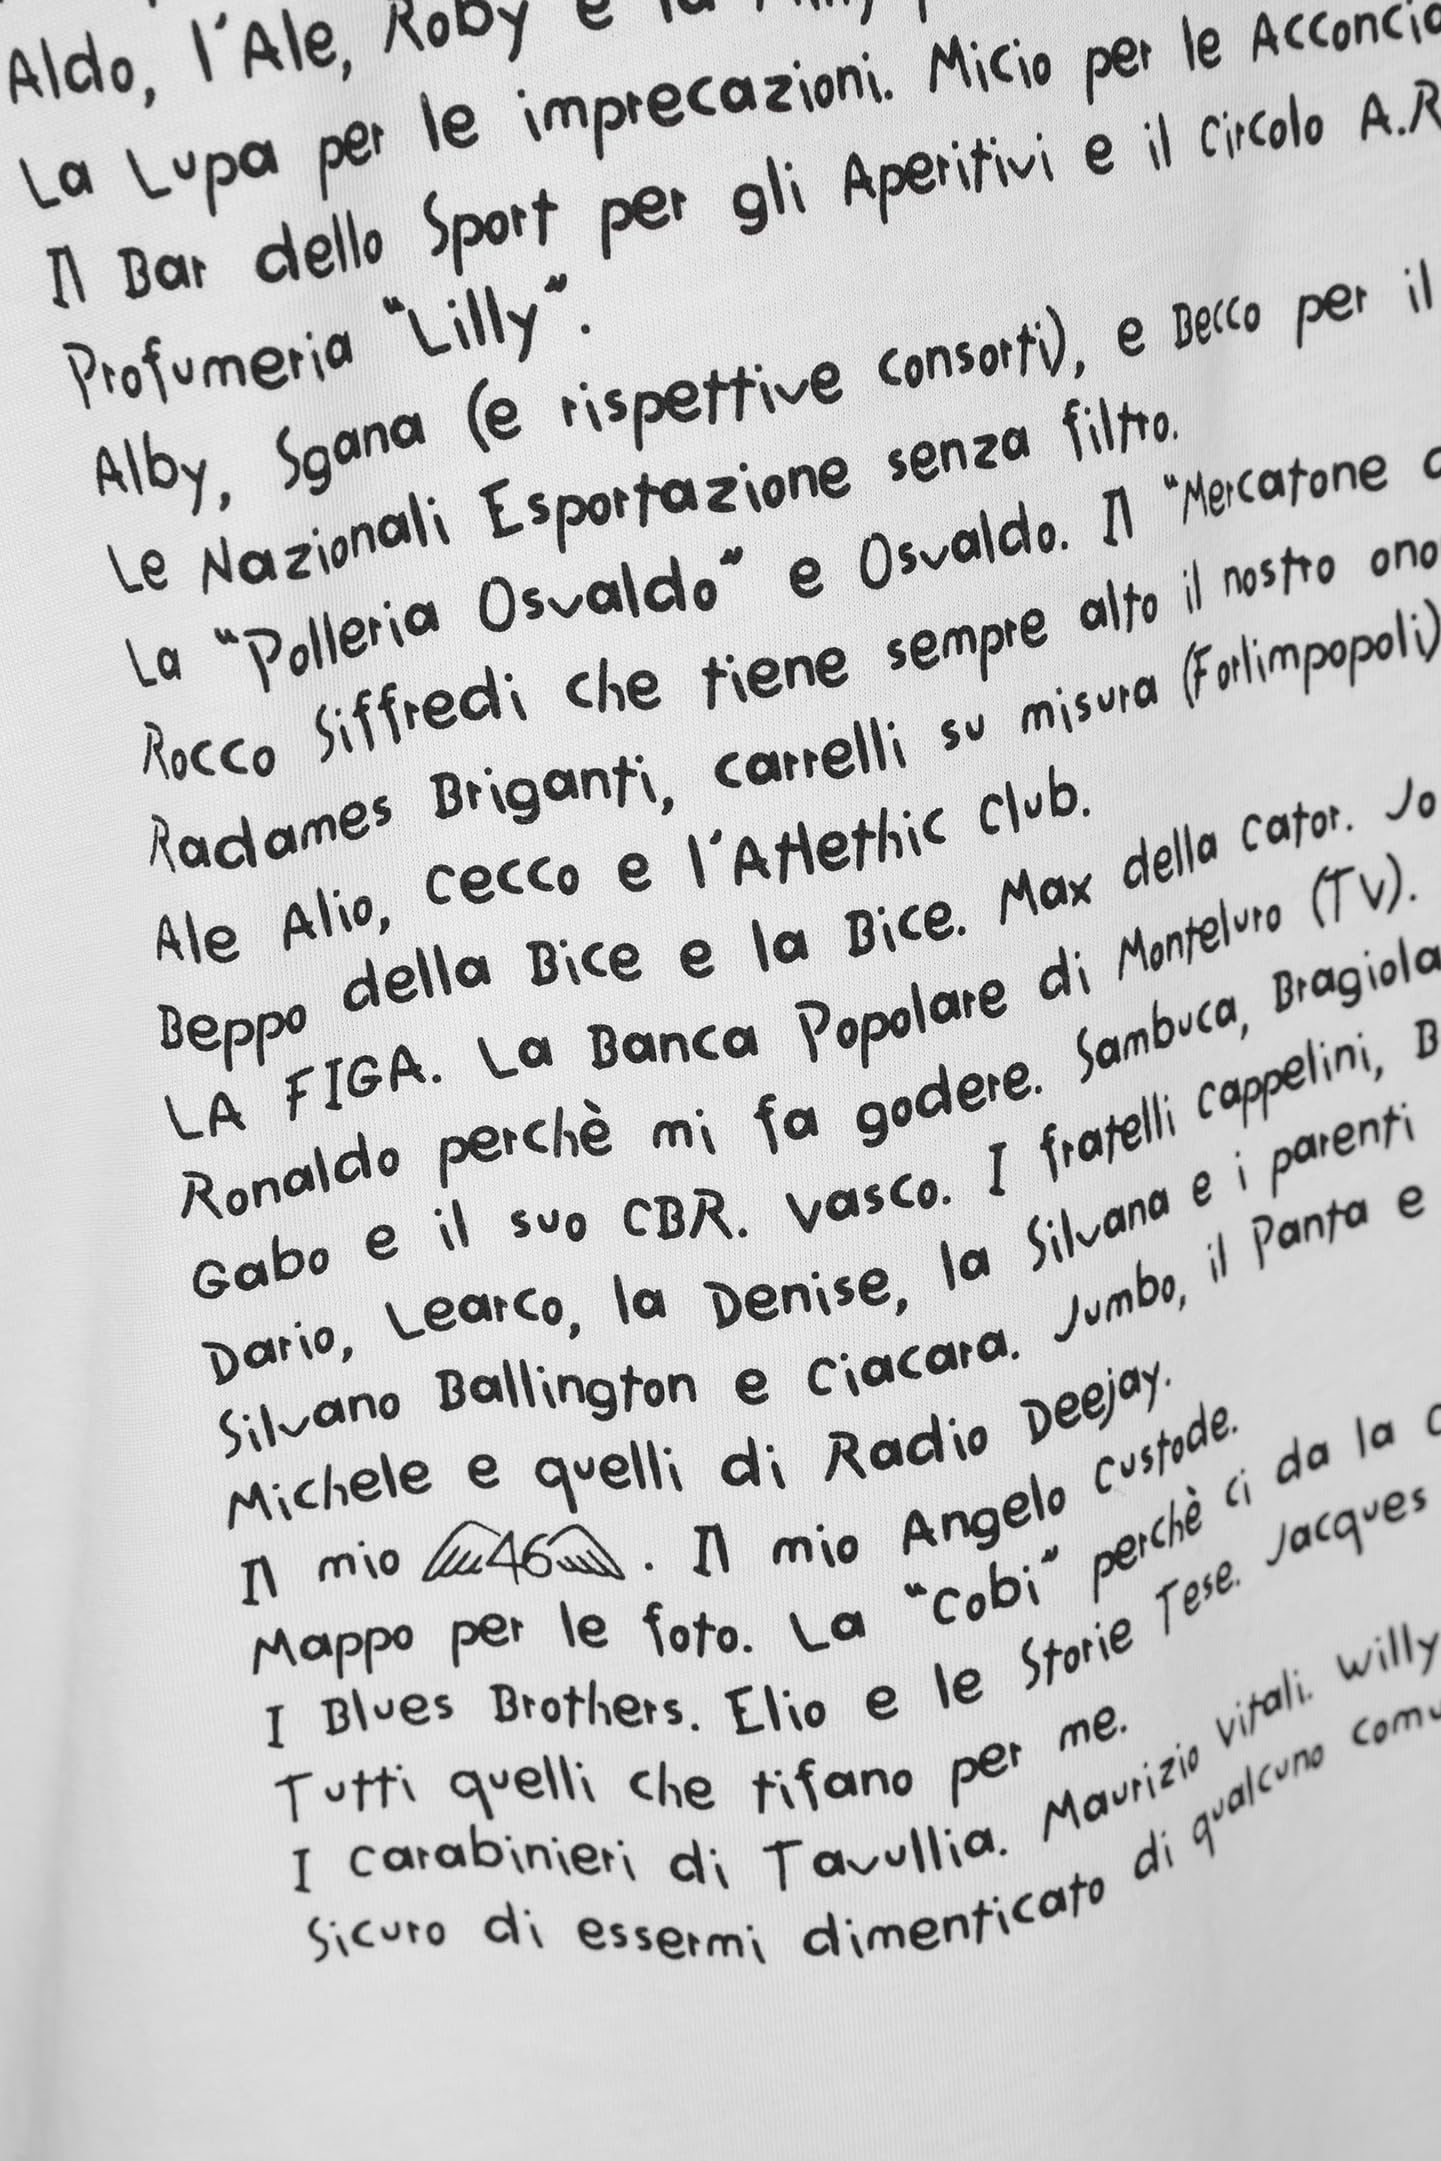 Aldo, l'Ale, Roby e la
La Lupa per le imprecazioni. Micio per le Acconcia
Il Bar dello Sport per gli Aperitivi e il Circolo A.R
Profumeria "Lilly".
Alby, Sgana (e rispettive consorti), e Becco per il
Le Nazionali Esportazione senza filtro.
La "Polleria Osvaldo" e Osvaldo. Il "Mercatone
Rocco Siffredi che tiene sempre alto il nostro ono
Radames Briganti, carrelli su misura (Forlimpopoli)
Ale Alio, Cecco e l'Atlethic Club.
Beppo della Bice e la Bice. Max della Cator. Jo
LA FIGA. La Banca Popolare di Monteluro (TV).
Ronaldo perchè mi fa godere. Sambuca, Bragiola
Gabo e il suo CBR. Vasco. I fratelli Cappelini, B
Dario, Learco, la Denise, la Silvana e i parenti
Silvano Ballington e Ciacara. Jumbo, il Panta e
Michele e quelli di Radio Deejay.
Il mio 46. Il mio Angelo Custode.
Mappo per le foto. La "Cobi" perchè ci da la
I Blues Brothers. Elio e le Storie Tese. Jacques
Tutti quelli che tifano per me.
I Carabinieri di Tavullia. Maurizio Vitali. Willy
Sicuro di essermi dimenticato di qualcuno comu